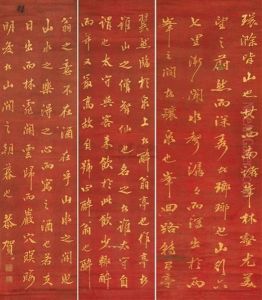 環滁皆山也其西南諸峯林壑尤美
望之蔚然而深秀者瑯琊也山行六
七里漸聞水聲潺潺而瀉出於兩
峯之間者釀泉也峯回路轉有亭
翼然臨於泉上者醉翁亭也作亭者
誰山之僧智仙也名之者誰太守自
謂也太守與客來飲於此飲少輒醉
而年又最高故自號曰醉翁也醉
翁之意不在酒在乎山水之間也
山水之樂得之心而寓之酒也若夫
日出而林霏開雲歸而巖穴暝晦
明變化者山間之朝暮也 恭賀